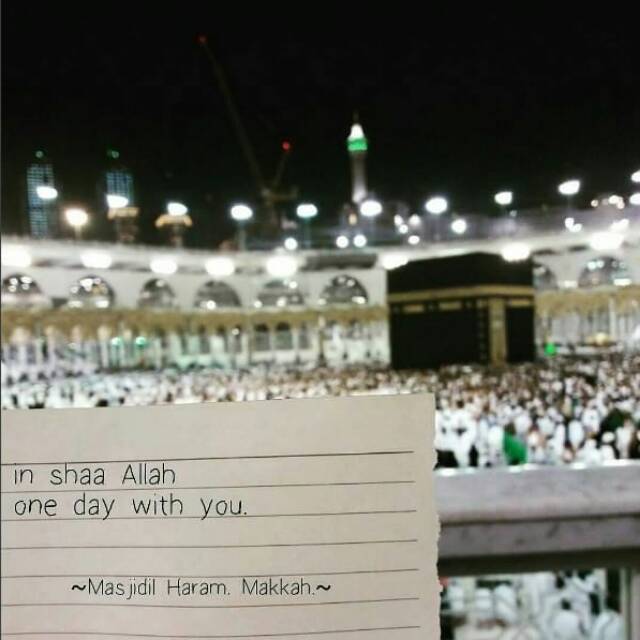 in shaa Allah
one day with you.
~Masjidil Haram. Makkah.~